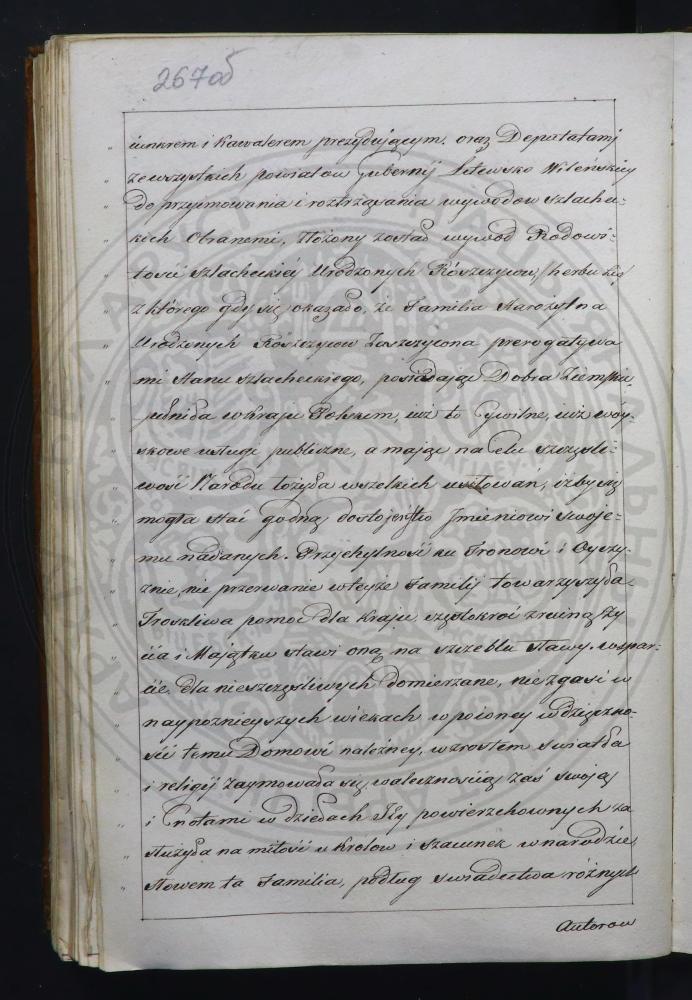 267об
iunkrem i Kawalerem prezydującym. oraz Deputatami
ze wszystkich powiatow Gubernij Litewsko Wileńskiey
do przyimowania i roztrząsania wywodow szlache-
ckich Obranemi, Złożony został wywod Rodowi-
tości szlacheckiéy Urodzonych Rószczycow, herbu Lis,
z którego gdy się okazało, że Familia starożytna
Urodzonych Rószczycow Zaszczycona prerogatywa-
mi stanu szlacheckiego, posiadając Dobra Ziemskie,
pełniła w kraju Polskim, iuż to Cywilne, iuż woy-
skowe usługi publiczne, a mając na celu szczęśli-
wość Narodu łożyła wszelkich usiłowań, iżby się
mogła stać godną dostojeństw Jmieniowi swoje-
mu nadanych. Przychylność ku Tronowi i Oyczy-
znie, nie przerwanie w teyże Familij towarzyszyła
Troskliwa pomoc dla Kraju, częstokroć z ruiną Ży-
cia i Majątku stawi oną na szczeblu sławy, wspar-
cie, dla nieszczęśliwych domierzane, nie zgasi w
naypoznieyszych wiekach wpoioney wdzięczno-
ści temu Domowi należney, wzrostem swiatła
i religij zaymowała się, walecznością zaś swoją
i Cnotami w dziełach Jły powierzchownych za
służyła na miłość u Krolow i szacunek w narodzie,
słowem ta Familia, podług swiadectwa różnych
Autorow